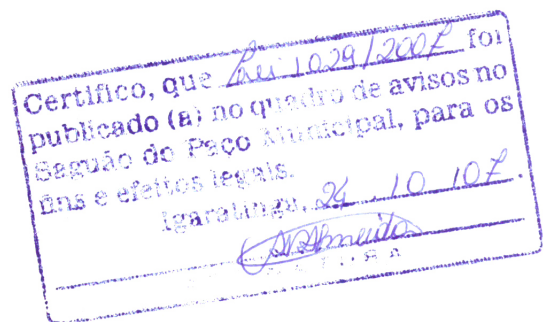 Certifico, que Lei 1029/2007 foi
publicado (a) no quadro de avisos no
Saguão do Paço Municipal, para os
fins e efeitos legais.
Igaratinga, 24 . 10 107.
Almeida